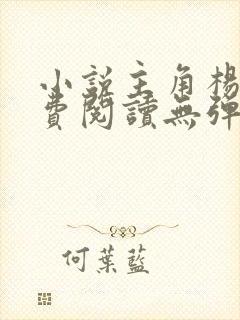 小説主角楊
費閱讀無彈
何葉藍